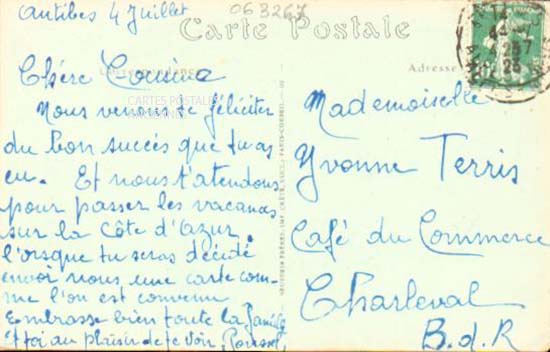 Antibes 4 Juillet
063267
Carte Postale
Chère Cousine
CARTES POSTALES
Adresse
Nous venons te féliciter
du bon succès que tu as
eu. Et nous t'atendons
pour passer les vacances
sur la Côte d'Azur.
l'orsque tu seras décidé
envoi nous une carte com-
me l'on est convenu
Embrasse bien toute la famille
Et toi au plaisir de te voir
Mademoiselle
Yvonne Terris
Café du Commerce
Charleval
B.d.R